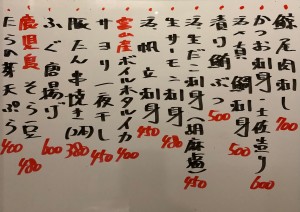 鮫尾肉刺し 700
かつお刺身・土佐造り 600
活〆真鯛刺身 500
活〆鯛ぶつ 500
活生だこ刺身(胡麻油) 450
生サーモン刺身 480
活帆立刺身 450
富山産ボイルホタルイカ 400
サヨリ一夜干し 450
豚たん串焼き(2本) 380
ふぐ唐揚げ 600
鹿児島そら豆 480
たらの芽天ぷら 400